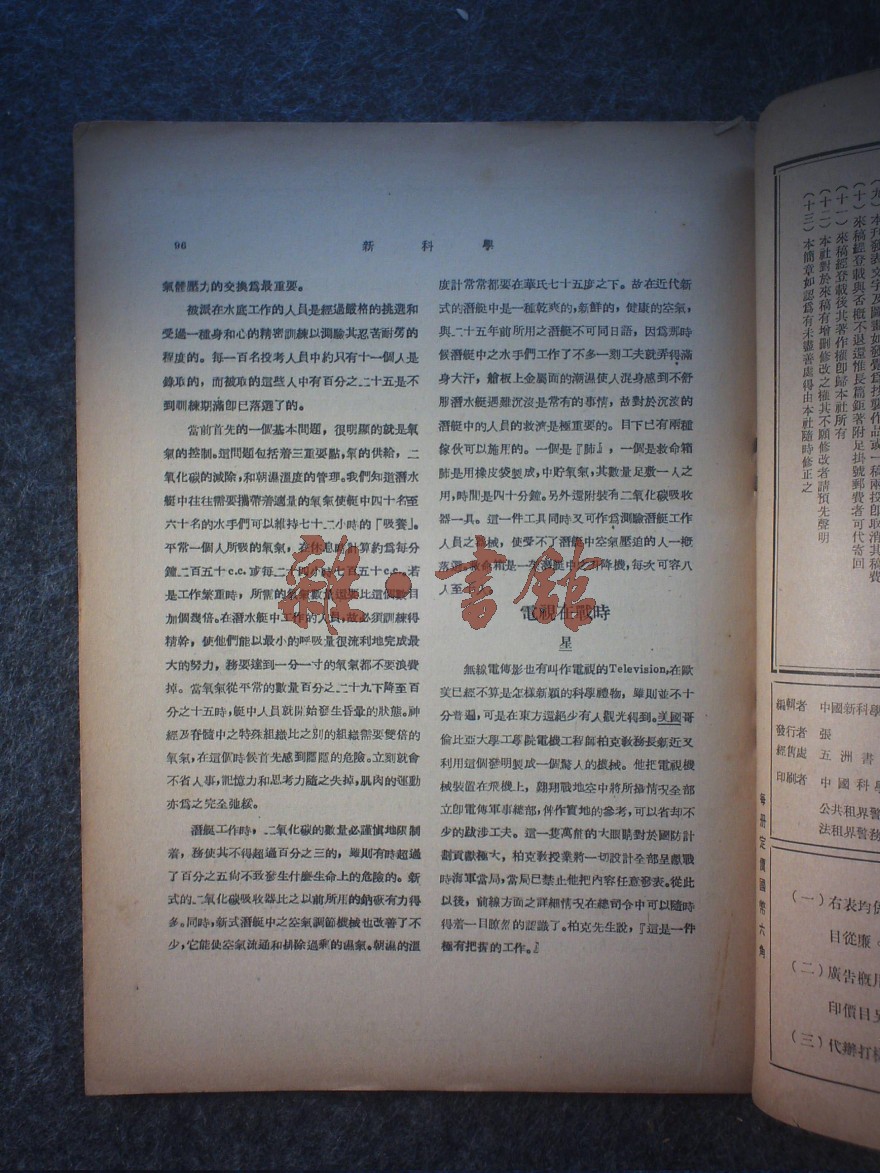 96
新科學
氣體壓力的交換爲最重要。
被派在水底工作的人員是經過嚴格的挑選和
受過一種身和心的精密訓練以測驗其忍苦耐勞的
程度的。每一百名投考人員中約只有十一個人是
錄取的，而被取的這些人中有百分之二十五是不
到訓練期滿卽已落選了的。
當前首先的一個基本問題，很明顯的就是氧
氣的控制。這問題包括着三重要點，氧的供給，二
氧化碳的減除，和潮濕溫度的管理。我們知道潛水
艇中往往需要攜帶着適量的氧氣使艇中四十名至
六十名的水手們可以維持七十二小時的「吸養」。
平常一個人所吸的氧氣，在休息時計算約爲每分
鐘二百五十c.c.或每二十四小時七百五十c.c.若
是工作繁重時，所需的氧氣數量還要比這個數目
加個幾倍。在潛水艇中工作的人員，故必須訓練得
精幹，使他們能以最小的呼吸量很流利地完成最
大的努力，務要達到一分一寸的氧氣都不要浪費
掉。當氧氣從平常的數量百分之二十九下降至百
分之十五時，艇中人員就開始發生昏暈的狀態。神
經及脊髓中之特殊組織比之別的組織需要雙倍的
氧氣，在這個時候首先感到壓壓的危險。立刻就會
不省人事，記憶力和思考力隨之失掉，肌肉的運動
亦爲之完全弛緩。
潛艇工作時，二氧化碳的數量必謹慎地限制
着，務使其不得超過百分之三的，雖則有時超過
了百分之五尚不致發生什麼生命上的危險的。新
式的二氧化碳吸收器比之以前所用的鈉碳有力得
多。同時，新式潛艇中之空氣調節機械也改善了不
少，它能使空氣流通和排除過剩的濕氣。潮濕的溫
度計常常都要在華氏七十五度之下。故在近代新
式的潛艇中是一種乾爽的，新鮮的，健康的空氣，
與二十五年前所用之潛艇不可同日語，因爲那時
候潛艇中之水手們工作了不多一刻工夫就弄得滿
身大汗，艙板上金屬面的潮濕使人混身感到不舒
那潛水艇遇難沉沒是常有的事情，故對於沉沒的
潛艇中的人員的救濟是極重要的。目下已有兩種
傢伙可以施用的。一個是『肺』，一個是救命箱
肺是用橡皮袋製成，中貯氧氣，其數量足敷一人之
用，時間是四十分鐘。另外還附裝有二氧化碳吸收
器一具。這一件工具同時又可作爲測驗潛艇工作
人員之機械，使受不了潛艇中空氣壓迫的人一概
落選。救命箱是一架潛艇中之升降機，每次可容八
人至
電視在戰時
星
無線電傳影也有叫作電視的Television，在歐
美已經不算是怎樣新穎的科學禮物，雖則並不十
分普遍，可是在東方還絕少有人觀光得到。美國哥
倫比亞大學工學院電機工程師柏克教務長新近又
利用這個發明製成一個驚人的機械。他把電視機
械裝置在飛機上，翺翔戰地空中將所攝情况全部
立卽電傳軍事總部，俾作實地的參考，可以省却不
少的跋涉工夫。這一隻萬前的大眼睛對於國防計
劃貢獻極大，柏克敎授業將一切設計全部呈獻戰
時海軍當局，當局已禁止他把內容任意發表。從此
以後，前線方面之詳細情况在總司令中可以隨時
得着一目瞭然的認識了。柏克先生說，『這是一件
極有把握的工作。』
雜·書館
（九）本刊發表文字及圖畫如發覺爲抄襲作品或一稿兩投卽取消其稿費
（十）來稿經登載與否概不退還惟長篇鉅著附足掛號郵費者可代寄回
（十一）來稿經登載後其著作權卽歸本社所有
（十二）本社對於來稿有增刪修改之權其不願修改者請預先聲明
（十三）本簡章如認爲有未盡善處得由本社隨時修正之
編輯者 中國新科學
發行者 張
經售處 五洲書
印刷者 中國科學
公共租界警
法租界警務
每册定價國幣六角
（一）右表均係
目從廉。
（二）廣告概用
印價目另
（三）代辦打樣